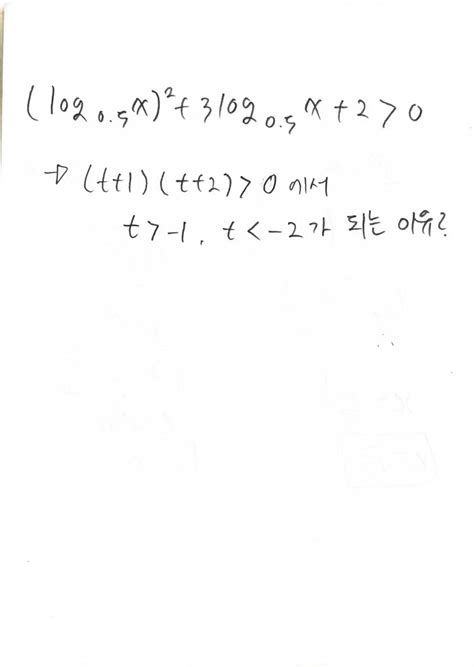 (log₀.₅x)²+3log₀.₅x+2>0
→ (t+1)(t+2)>0 에서
t>-1, t<-2가 되는 이유?